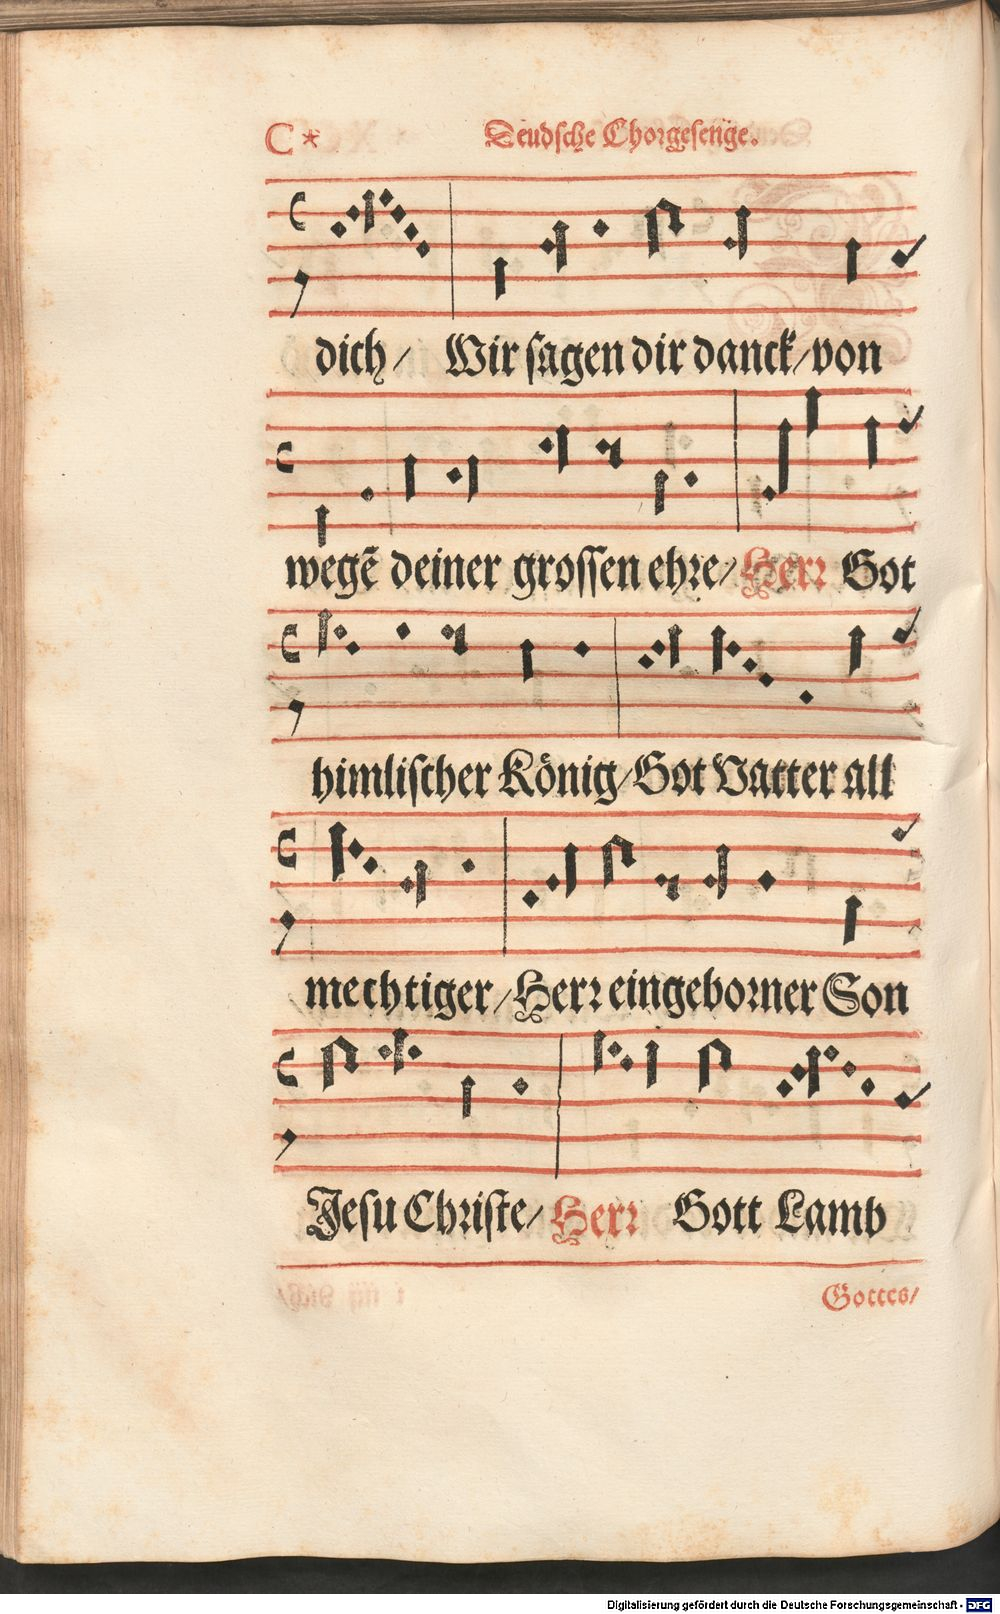 C * Deudsche Chorgesenge.
dich/ Wir sagen dir danck/von
wegē deiner grossen ehre/Herr Got
himlischer König/Got Vatter all
mechtiger/Herr eingeborner Son
Jesu Christe/Herr Gott Lamb
Gottes/
Digitalisierung gefördert durch die Deutsche Forschungsgemeinschaft - DFG